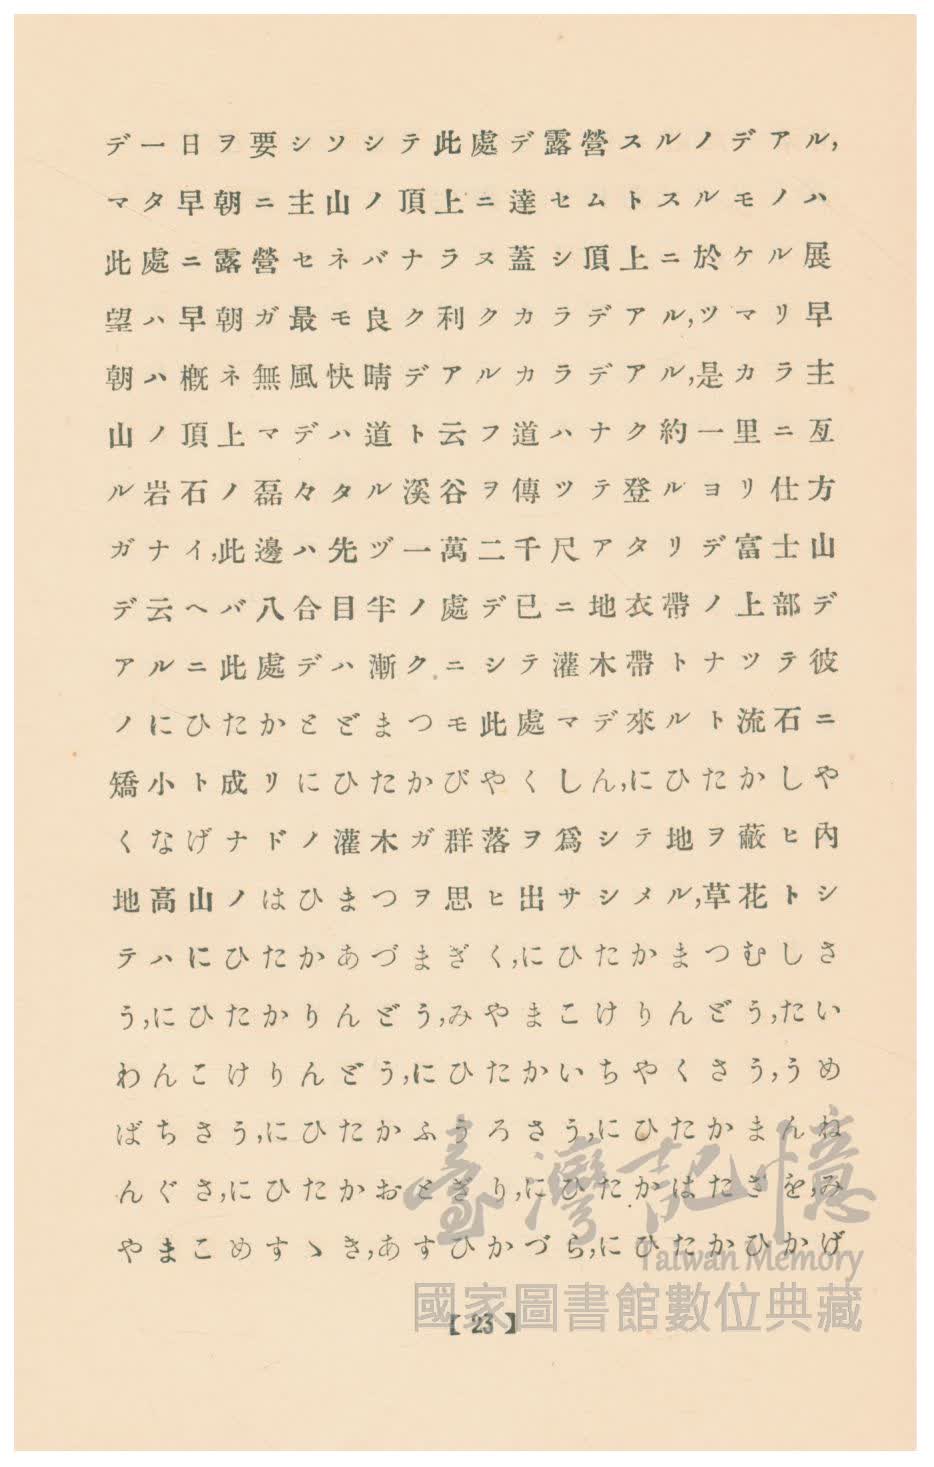 デ一日ヲ要シソシテ此處デ露營スルノデアル,
マタ早朝ニ主山ノ頂上ニ達セムトスルモノハ
此處ニ露營セネバナラヌ蓋シ頂上ニ於ケル展
望ハ早朝ガ最モ良ク利クカラデアル,ツマリ早
朝ハ槪ネ無風快晴デアルカラデアル,是カラ主
山ノ頂上マデハ道ト云フ道ハナク約一里ニ亙
ル岩石ノ磊々タル溪谷ヲ傳ツテ登ルヨリ仕方
ガナイ,此邊ハ先ヅ一萬二千尺アタリデ富士山
デ云ヘバ八合目半ノ處デ已ニ地衣帶ノ上部デ
アルニ此處デハ漸クニシテ灌木帶トナツテ彼
ノにひたかとどまつモ此處マデ來ルト流石ニ
矯小ト成リにひたかびやくしん,にひたかしや
くなげナドノ灌木ガ群落ヲ爲シテ地ヲ蔽ヒ內
地高山ノはひまつヲ思ヒ出サシメル,草花トシ
テハにひたかあづまぎく,にひたかまつむしさ
う,にひたかりんどう,みやまこけりんどう,たい
わんこけりんどう,にひたかいちやくさう,うめ
ばちさう,にひたかふうろさう,にひたかまんね
んぐさ,にひたかおとぎり,にひたかはたざを,み
やまこめすゝき,あすひかづら,にひたかひかげ
【23】
臺灣記憶
Taiwan Memory
國家圖書館數位典藏